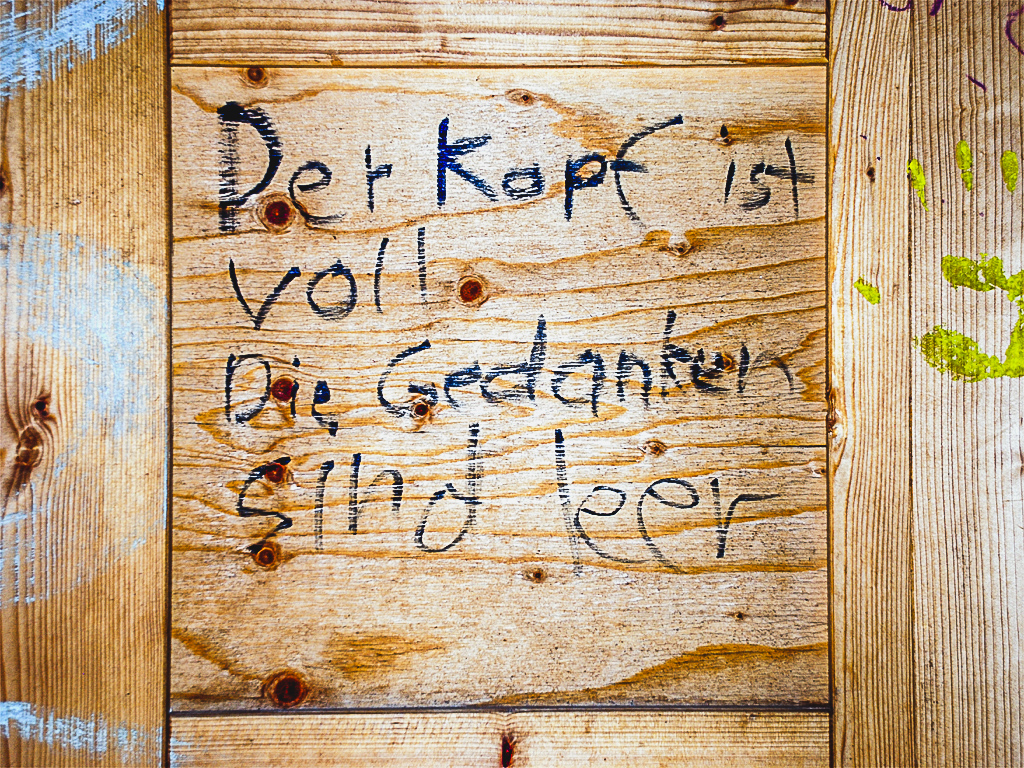 Der Kopf ist
voll
Die Gedanken
sind leer